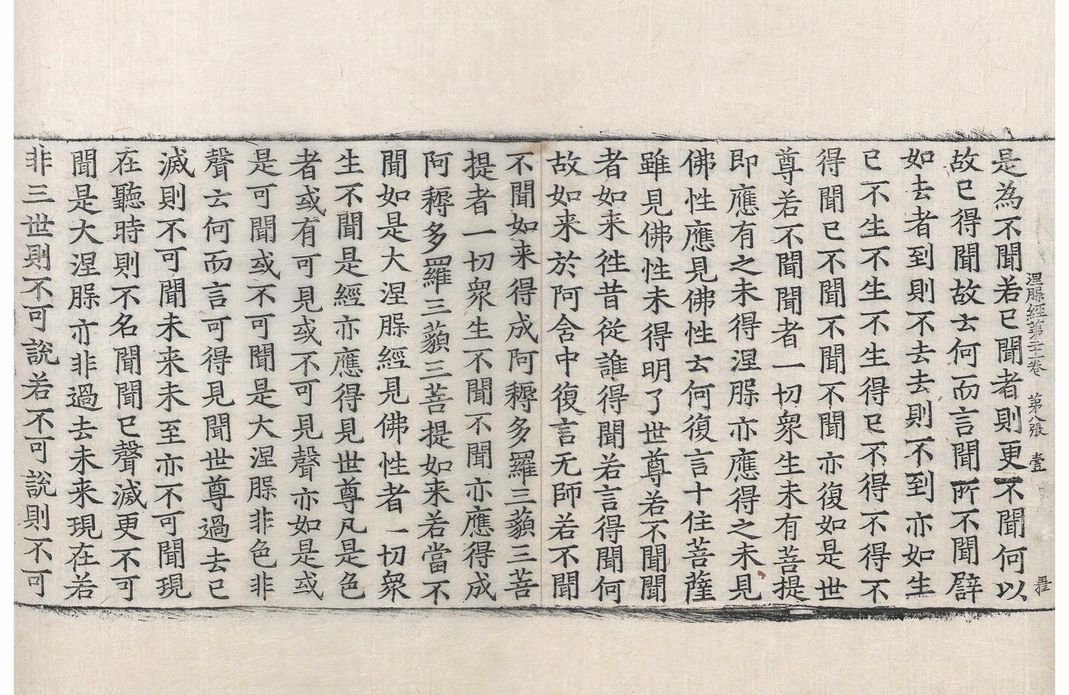 涅槃經第二十一卷　第八張　壹
是為不聞若已聞者則更不聞何以
故已得聞故云何而言聞所不聞譬
如去者到則不去去則不到亦如生
已不生不生不生得已不得不得不
得聞已不聞不聞不聞亦復如是世
尊若不聞聞者一切衆生未有菩提
即應有之未得涅槃亦應得之未見
佛性應見佛性云何復言十住菩薩
雖見佛性未得明了世尊若不聞聞
者如来徃昔從誰得聞若言得聞何
故如来於阿含中復言无師若不聞
不聞如来得成阿耨多羅三藐三菩
提者一切衆生不聞不聞亦應得成
阿耨多羅三藐三菩提如来若當不
聞如是大涅槃經見佛性者一切衆
生不聞是經亦應得見世尊凡是色
者或有可見或不可見聲亦如是或
是可聞或不可聞是大涅槃非色非
聲云何而言可得見聞世尊過去已
滅則不可聞未来未至亦不可聞現
在聽時則不名聞聞已聲滅更不可
聞是大涅槃亦非過去未来現在若
非三世則不可說若不可說則不可